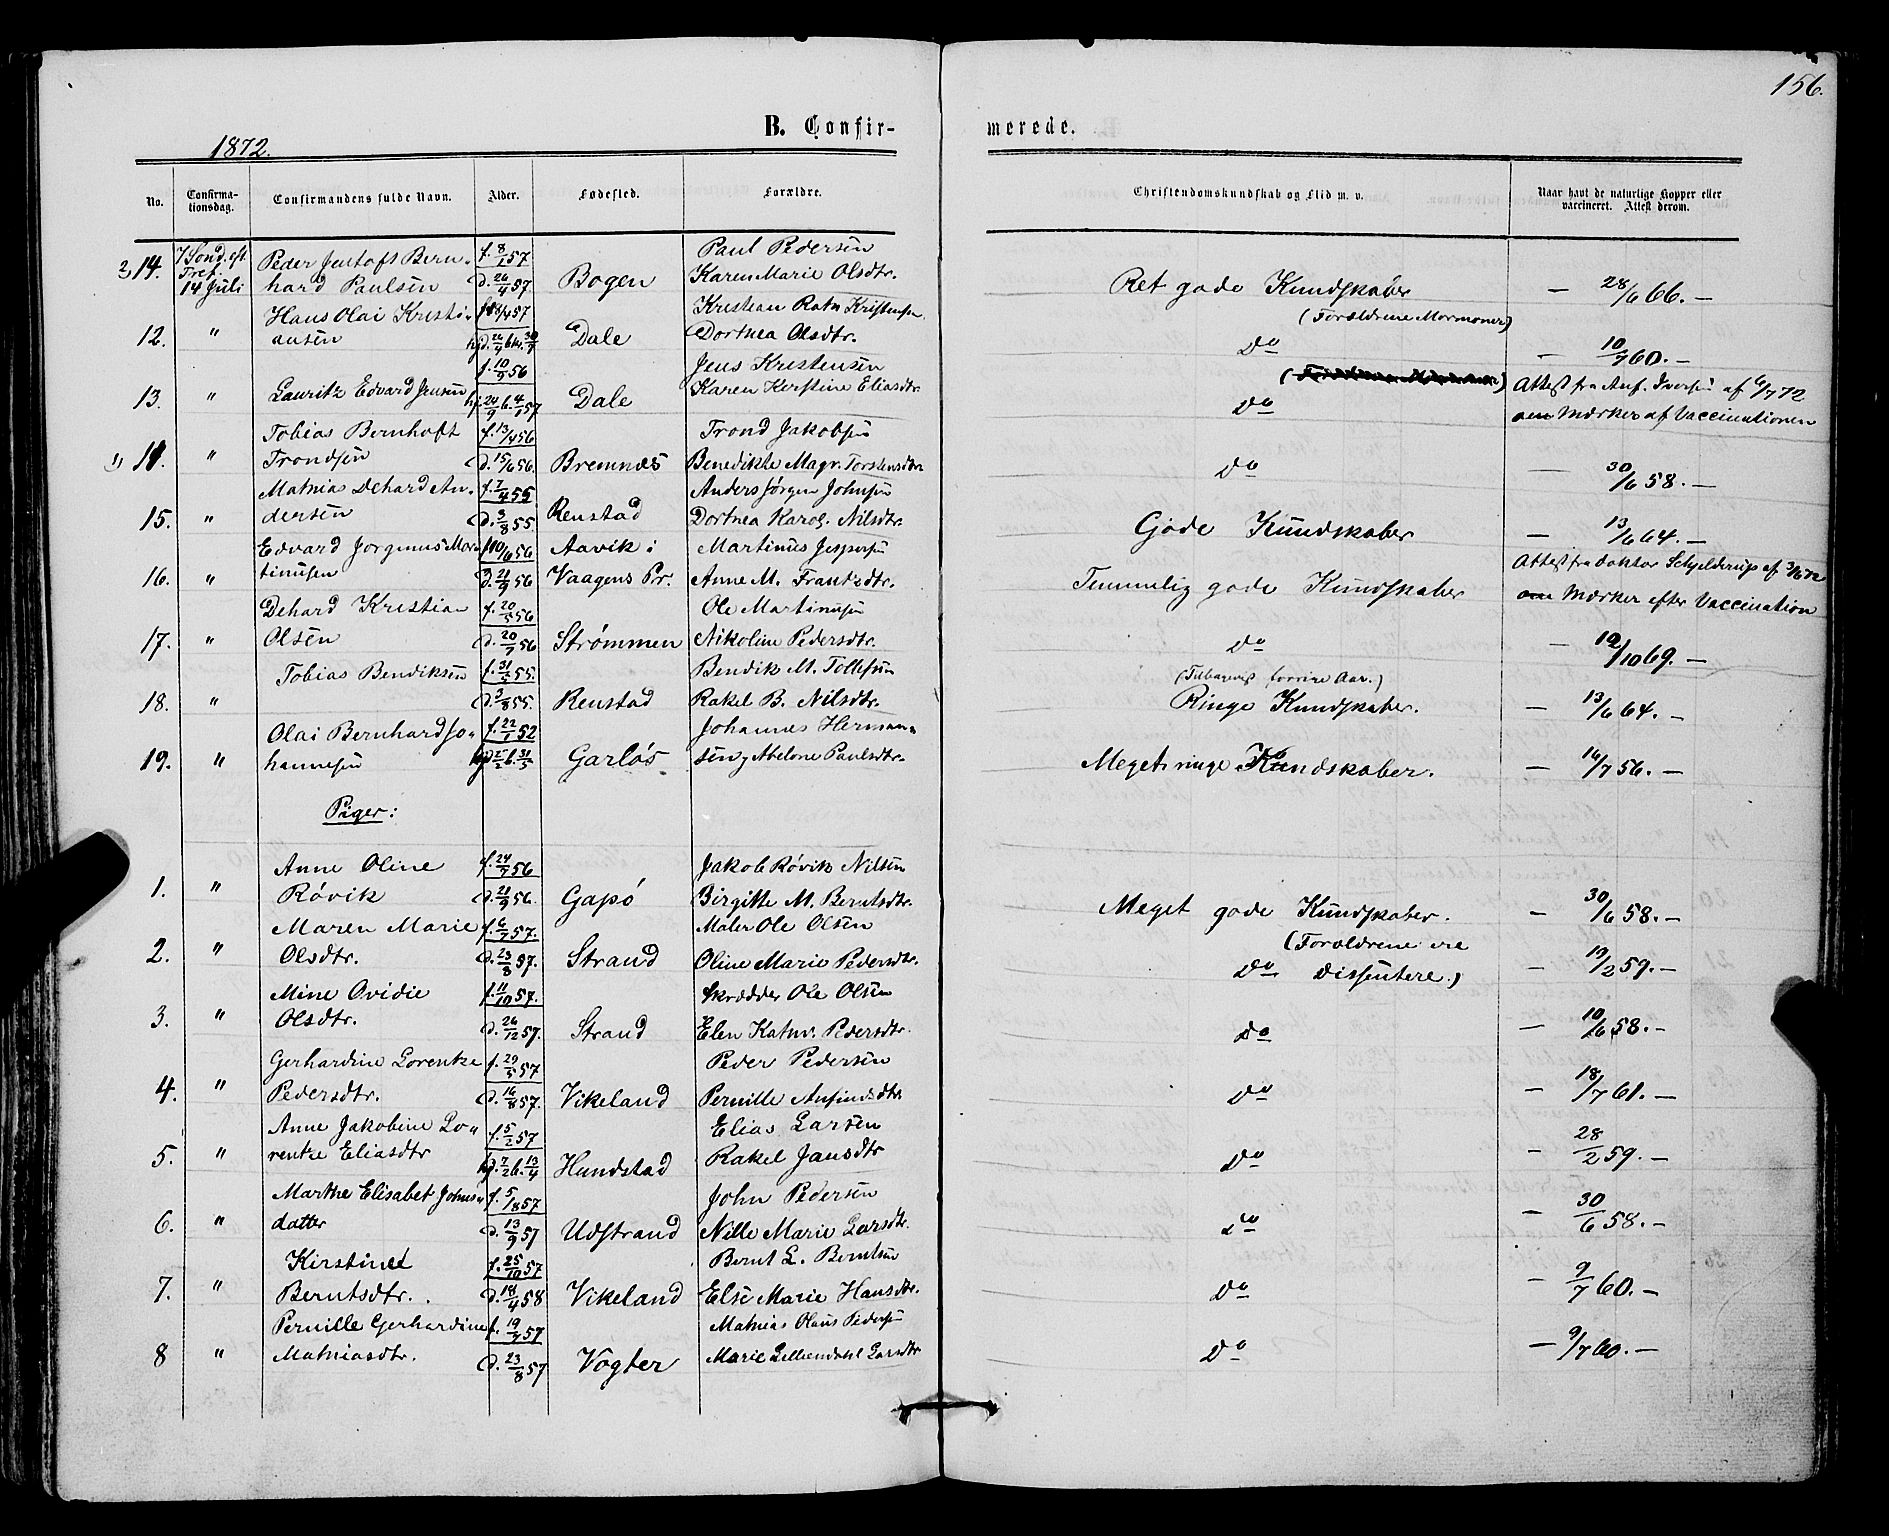 156.
B. Confir-
merede.
1872.
No.
Confirma-
tionsdag.
Confirmandens fulde Navn.
Alder.
Fødested.
Forældre.
Christendomskundskab og Flid m. v.
Naar havt de naturlige Kopper eller
vaccineret. Attest derom.
7 Sond. eft. Peder Jentoft Bern- f. 8/1 57 Paul Pedersen
2) 14. Tref. 14 Juli hard Paulsen d. 26/4 57 Bogen Karen Marie Olsdtr. Ret gode Kundskaber — 28/6 66. —
Hans Olai Kristi- Kristian Kristensen (Forældrene Mormoner)
12. " ansen Dale Dorthea Olsdtr. Do — 10/7 60. —
f. 10/9 56 Jens Kristensen
13. " Lauritz Edvard Jensen Dale Karen Kirstine Eliasdtr. Do Attest fra Iversen af 6/7 72
Mærker af Vaccinationen
Tobias Bernhoft f. 13/4 56 Trond Jakobsen
1) 11. " Trondsen d. 15/6 56. Bremnæs Benedikte Magr. Torstensdtr. Do — 30/6 58. —
Mathias Dehard An- f. 7/4 55 Anders Jørgen Johnsen
15. " dersen d. 3/8 55 Renstad Dorthea Karol. Nilsdtr. Gode Kundskaber — 13/6 64. —
Edvard Jørginus Mar- f. 10/6 56 Aavik i Martinus Jespersen Attest fra Doktor Schjelderup af 3/6 72
16. " tinusen d. 21/9 56 Vaagens Pr. Anne M. Frantzdtr. Temmelig gode Kundskaber Mærker efter Vaccination
Dehard Kristian f. 20/5 56 Ole Martinusen
17. " Olsen d. 20/7 56 Strømmen Nikoline Pedersdtr. Do — 12/10 69. —
Tobias Bendiksen f. 31/5 55. Bendik M. Tollefsen (Tilbagevist forrige Aar.)
18. " d. 3/8 55. Renstad Rakel B. Nilsdtr. Ringe Kundskaber. — 13/6 64. —
Olai Bernhard Jo- f. 22/1 52 Johannes Herman-
19. " hannesen Garløs sen, Abelone Paulsdtr. Meget ringe Kundskaber. — 16/7 56. —
Piger:
Anne Oline f. 24/7 56 Jakob Røvik Nilsen
1. " Røvik d. 21/9 56. Gapø Birgitte M. Berntsdtr. Meget gode Kundskaber. — 30/6 58. —
Maren Marie f. 6/7 57. Maler Ole Olsen (Forældrene ere
2. " Olsdtr. d. 23/8 57. Strand Oline Marie Pedersdtr. Do Dissentere.) — 19/2 59. —
Mine Ovidie f. 11/10 57. Skrædder Ole Olsen
3. " Olsdtr. d. 26/12 57. Strand Elen Kathr. Pedersdtr. Do — 10/6 58. —
Gerhardine Lorentze f. 29/5 57 Peder Pedersen
4. " Pedersdtr. d. 16/8 57. Vikeland Pernille Anfindsdtr. Do — 18/7 61. —
Anne Jakobine Lo- f. 5/2 57 Elias Larsen
5. " rentze Eliasdtr hjd. 7/2 b. 13/4 Hundstad Rakel Jansdtr Do — 28/2 59. —
Marthe Elisabet Johns- f. 5/8 57 John Pedersen
6. " datter d. 13/9 57 Udstrand Nille Marie Larsdtr. Do — 30/6 58. —
Kirstine f. 25/10 57 Bernt L. Berntsen
7. " Berntsdtr. d. 18/4 58 Vikeland Else Marie Hansdtr. Do — 9/7 60. —
Pernille Gerhardine f. 19/7 57 Mathias Olaus Pedersen
8 " Mathiasdtr. d. 23/8 57 Vogter Marie Lilliendahl Larsdtr Do — 9/7 60. —